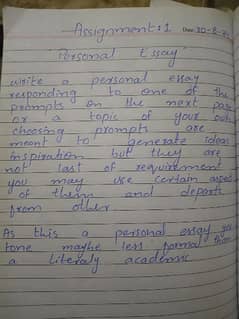 Assignment:1 Date: 20-8-
Personal Essay
write a personal essay
responding to one of the
prompts on the next page
or a topic of your own
choosing prompts are
meant to generate ideas
inspiration but they are
not last of requirement
you may use certain aspect
of them and deports
from other
As this a personal essay you
tone maybe less formal than
a literaly academic